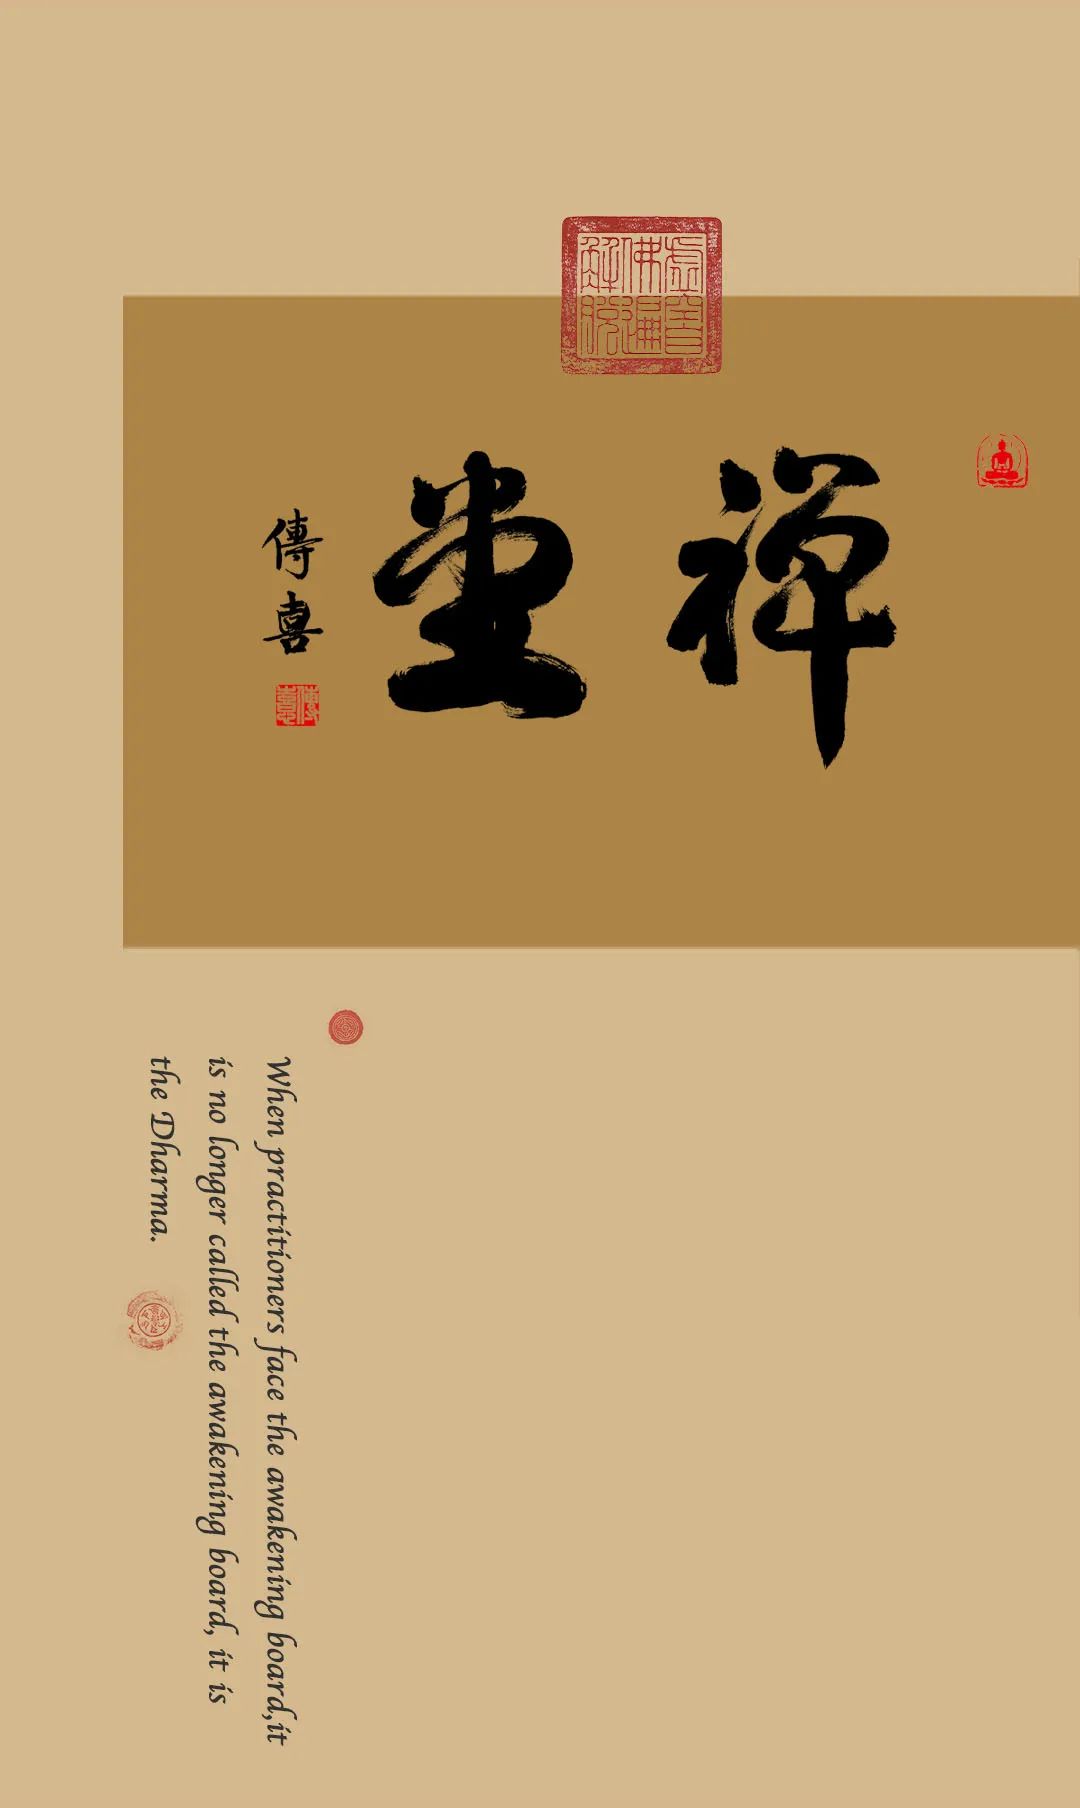 禪堂
傳喜
傳喜
When practitioners face the awakening board,it
is no longer called the awakening board, it is
the Dharma.